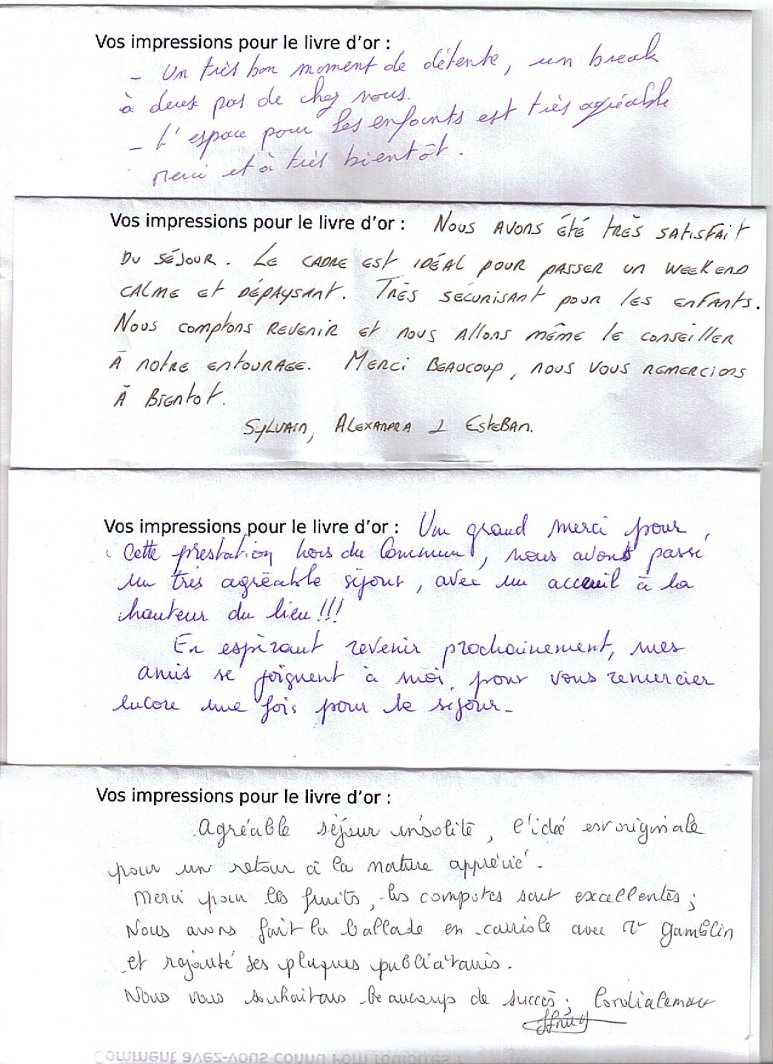 Vos impressions pour le livre d'or :
- Un très bon moment de détente, un break
à deux pas de chez nous.
- L'espace pour les enfants est très agréable
merci et à très bientôt.
Vos impressions pour le livre d'or : Nous avons été très satisfait
du séjour. Le cadre est idéal pour passer un weekend
calme et dépaysant. Très sécurisant pour les enfants.
Nous comptons revenir et nous allons même le conseiller
à notre entourage. Merci beaucoup, nous vous remercions
à bientot.
Sylvain, Alexandra & Esteban.
Vos impressions pour le livre d'or : Un grand merci pour
cette prestation hors du commun, nous avons passé
un très agréable séjour, avec un acceuil à la
hauteur du lieu!!!
En espérant revenir prochainement, mes
amis se joignent à moi pour vous remercier
encore une fois pour le séjour-
Vos impressions pour le livre d'or :
Agréable séjour insolite, l'idée est originale
pour un retour à la nature apprécié.
Merci pour les fruits, les compotes sont excellentes;
Nous avons fait la ballade en carriole avec Mr Gamblin
et rajouté ses plaques publicitaires.
Nous vous souhaitons beaucoups de succès; Cordialement